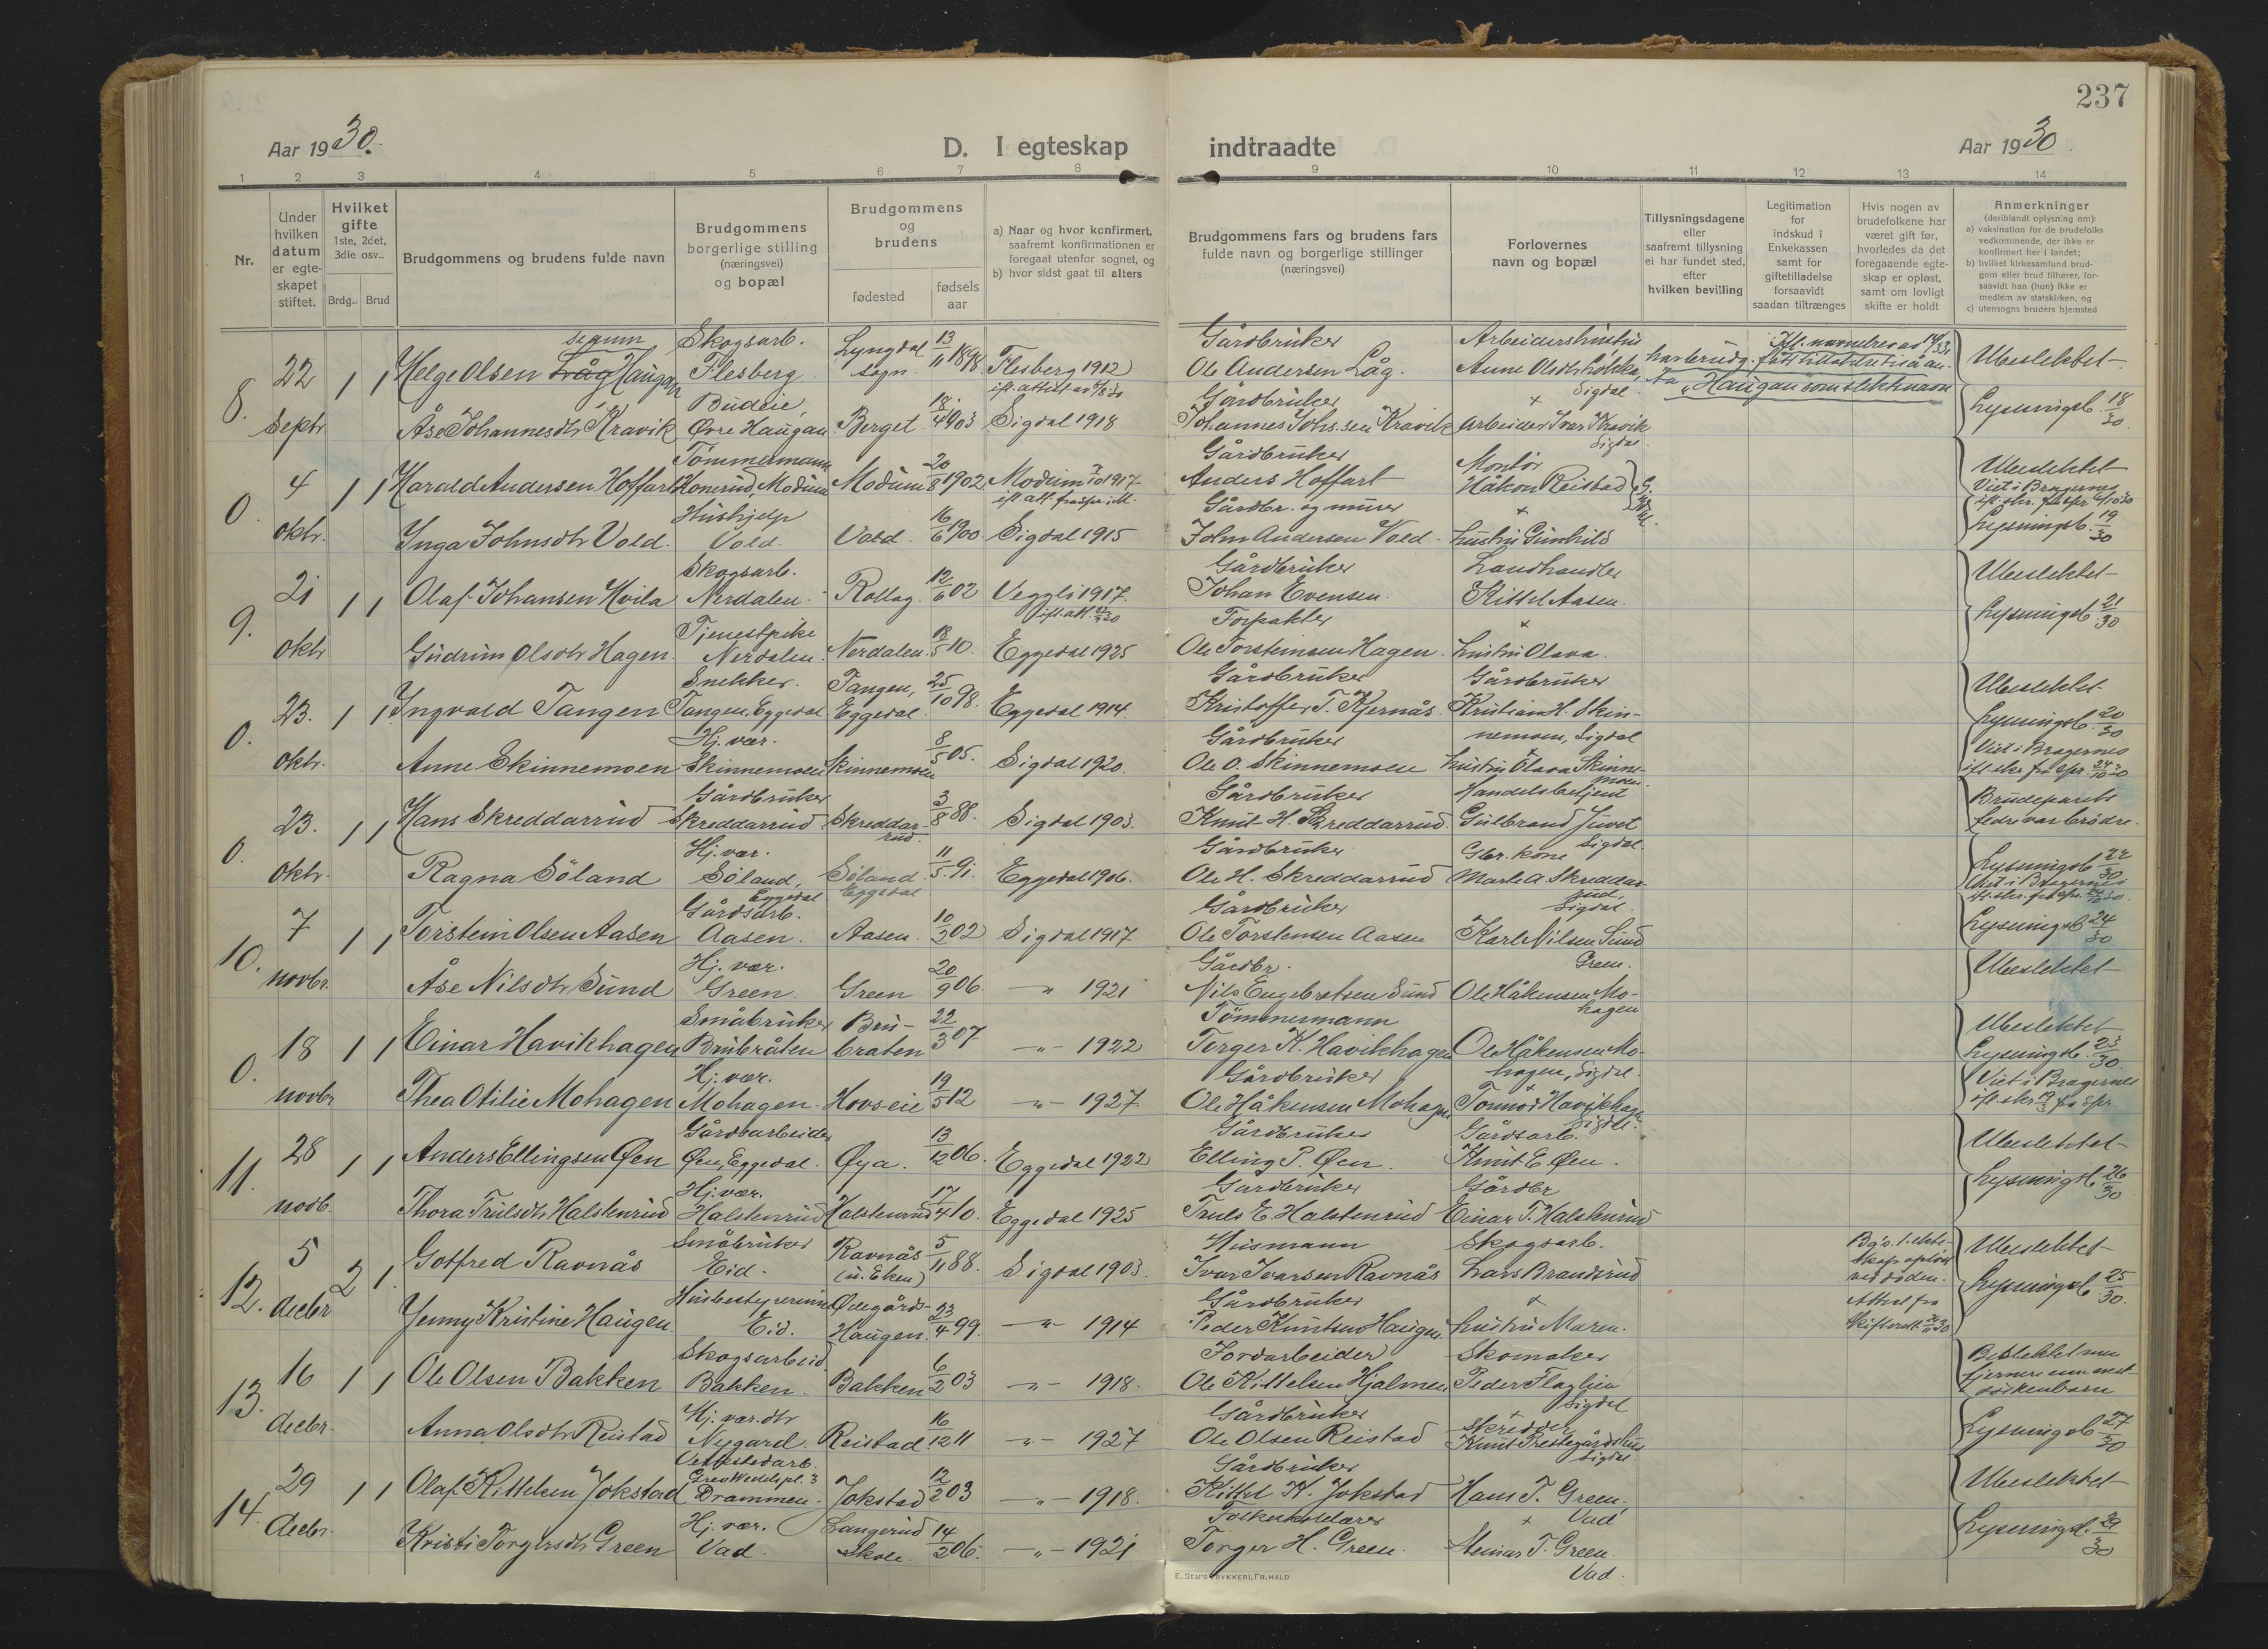 237
Aar 1930.
D. I egteskap indtraadte
Aar 1930.
1 2 3 4 5 6 7 8 9 10 11 12 13 14
Nr.
Under hvilken datum er egteskapet stiftet.
Hvilket gifte
1ste, 2det, 3die osv..
Brdg.. Brud
Brudgommens og brudens fulde navn
Brudgommens borgerlige stilling (næringsvei) og bopæl
Brudgommens og brudens
fødested
fødsels aar
a) Naar og hvor konfirmert, saafremt konfirmationen er foregaat utenfor sognet, og
b) hvor sidst gaat til alters
Brudgommens fars og brudens fars fulde navn og borgerlige stillinger (næringsvei)
Forlovernes navn og bopæl
Tillysningsdagene eller saafremt tillysning ei har fundet sted, efter hvilken bevilling
Legitimation for indskud i Enkekassen samt for giftetilladelse forsaavidt saadan tiltrænges
Hvis nogen av brudefolkene har været gift før, hvorledes da det foregaaende egteskap er opløst, samt om lovligt skifte er holdt
Anmerkninger (deriblandt oplysning om)
a) vaksination for de brudefolks vedkommende, der ikke er konfirmert her i landet;
b) hvilket kirkesamfund brudgom eller brud tilhører, forsaavidt han (hun) ikke er medlem av statskirken, og
c) utensogns bruders hjemsted
8. 22 Septr. 1 1
Helge Olsen Låg Haugan
Skogsarb. Flesberg
Lyngdal sogn 13/11 1898
Flesberg 1912
Gårdbruker Ole Andersen Låg.
Arbeiderhustru Anne Olsdtr
Sigdal
"Haugan som slektsnavn
Ubeslektet
Åse Johannesdtr Kravik
Budeie, Øvre Haugan
Berget 1903
Sigdal 1918
Gårdbruker Johannes Johs.sen Kravik
Arbeider Ivar Kravik Sigdal
Lysningsb. 18/30
0. 4 oktr. 1 1
Harald Andersen Hoffart
Tömmermann Modum
Modum 20/8 1902
Modum 1917
Gårdbruker Anders Hoffart
Montör Håkon Reistad
Ubeslektet
Viet i Bragernes
Inga Johnsdtr Vold.
Hushjelp Vold.
Vold. 16/6 1900.
Sigdal 1915
Gårdbr. og murer John Andersen Vold.
hustru Gunhild
Lysningsb. 19/30
9. 21 oktr 1 1
Olaf Johansen Hvila
Skogsarb. Nerdalen.
Rollag. 12/6 02
Veggli 1917.
Gårdbruker Johan Evensen.
Landhandler Kittel Aasen.
Ubeslektet
Lysningsb. 21/30
Gudrun Olsdtr Hagen.
Tjenestpike Nerdalen.
Nerdalen. 18/5 10.
Eggedal 1925
Forpakter Ole Torsteinsen Hagen.
hustru Olava.
0. 23. oktr. 1 1
Ingvald Tangen
Snekker. Tangen, Eggedal
Tangen, Eggedal. 25/10 98.
Eggedal 1914.
Gårdbruker Kristoffer T. Kjernås.
Gårdbruker Kristian H. Skinnemoen, Sigdal
Ubeslektet
Lysningsb. 20/30
Anne Skinnemoen
Hj. vær. Skinnemoen
Skinnemoen 8/5 05.
Sigdal 1920.
Gårdbruker Ole O. Skinnemoen
hustru Olava Skinnemoen
Viet i Bragernes
0. 23. oktr. 1 1
Hans Skreddarrud
Gårdbruker Skreddarrud
Skreddarrud. 3/8 88.
Sigdal 1903.
Gårdbruker Knut H. Skreddarrud.
Handelsbetjent Gulbrand Juvet Sigdal.
Brudeparets fedre var brödre.
Ragna Söland
Hj. vær. Söland, Eggedal
Söland. Eggedal 11/5 91.
Eggedal 1906.
Gårdbruker Ole H. Skreddarrud
Gbr. kone Marte A Skreddarrud, Sigdal.
Lysningsb. 22/30
Viet i Bragernes
10. 7 novbr. 1 1
Torstein Olsen Aasen
Gårdsarb. Aasen.
Aasen. 10/2 02
Sigdal 1917
Gårdbruker Ole Torstensen Aasen
Karl Nilsen Sund Green.
Lysningsb 24/30
Åse Nilsdtr Sund
Hj. vær. Green.
Green 20/9 06.
-"- 1921
Gårdbr. Nils Engebretsen Sund
Ole Håkensen Mohagen
Ubeslektet
0. 18 novbr 1 1
Einar Havikhagen
Småbruker Brubråten
Brubraten 22/3 07
-"- 1922
Tömmermann Torger K. Havikhagen
Ole Håkensen Mohagen, Sigdal.
Ubeslektet
Lysningsb. 23/30
Thea Otilie Mohagen
Hj. vær. Mohagen.
Hovseie 19/5 12
-"- 1927
Gårdbruker Ole Håkensen Mohagen
Tormod Havikhagen Sigdal.
Viet i Bragernes
11. 28 novb. 1 1
Anders Ellingsen Øen
Gårdsarbeider Øen, Eggedal.
Øya. 13/12 06.
Eggedal 1922
Gårdbruker Elling P. Øen.
Gårdsarb. Knut E Øen.
Ubeslektet
Thora Trulsdtr Halstenrud
Hj. vær. Halstenrud
Halstenrud 17/4 10.
Eggedal 1925
Gårdbruker Truls E. Halstenrud
Gårdbr Einar T. Halstenrud
Lysningsb. 26/30
12. 5 decbr 2 1.
Gotfred Ravnås
Småbruker Eid.
Ravnås (u. Eken) 5/11 88.
Sigdal 1903.
Husmann Ivar Ivarsen Ravnås
Skogsarb. Lars Brandsrud
Bg's. 1. ekteskap oplöst ved döden.
Ubeslektet
Lysningsb 25/30.
Jenny Kristine Haugen.
Husbestyrerinne Eid.
Ødegårds-Haugen. 23/4 99.
-"- 1914
Gårdbruker Peder Knutsen Haugen
hustru Maren.
Attest fra Skifterett.
13. 16 decbr. 1 1
Ole Olsen Bakken
Skogsarbeid. Bakken.
Bakken 6/2 03
-"- 1918.
Jordarbeider Ole Kittelsen Hjalmen
Skomaker Peder Flaglien Sigdal
Beslektet men fjernere enn med söskenbarn
Anna Olsdtr Reistad
Hj. vær. dtr Nygard.
Reistad 16/12 11
-"- 1927
Gårdbruker Ole Olsen Reistad
Skredder Knut Sigdal
Lysningsb 27/30
14. 29 decbr. 1 1
Olaf Kittelsen Jokstad
Grev Wedelspl. 3 Drammen.
Jokstad 12/2 03
-"- 1918.
Gårdbruker Kittel K. Jokstad
Hans T. Green, Vad
Ubeslektet
Kristi Torgersdtr Green
Hj. vær. Vad.
Langerud skole. 14/2 06.
-"- 1921
Torger H. Green.
Steinar T. Green. Vad.
Lysningsb. 29/30
E. SEM'S TRYKKERI, FR.HALD